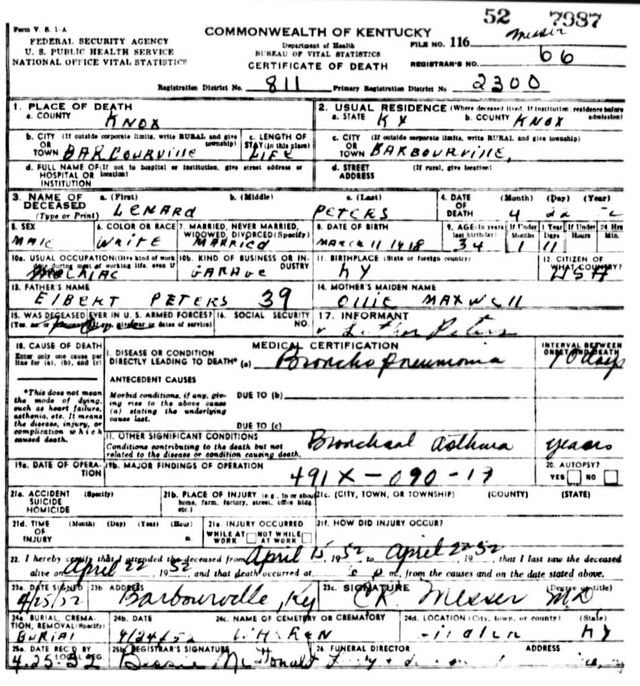 52 7987
Form V. S. 1-A
COMMONWEALTH OF KENTUCKY
Messer
FEDERAL SECURITY AGENCY
Department of Health
FILE NO. 116
U. S. PUBLIC HEALTH SERVICE
BUREAU OF VITAL STATISTICS
66
NATIONAL OFFICE VITAL STATISTICS
CERTIFICATE OF DEATH
REGISTRAR'S NO.
Registration District No. 811 Primary Registration District No. 2300
1. PLACE OF DEATH
a. COUNTY KNOX
2. USUAL RESIDENCE (Where deceased lived. If institution residence before admission)
a. STATE KY b. COUNTY KNOX
b. CITY (If outside corporate limits, write RURAL and give township)
OR TOWN BARBOURVILLE
c. LENGTH OF STAY (in this place) LIFE
c. CITY (If outside corporate limits, write RURAL and give township)
OR TOWN BARBOURVILLE,
d. FULL NAME OF (If not in hospital or institution, give street address or location)
HOSPITAL OR INSTITUTION
d. STREET ADDRESS (If rural, give location)
3. NAME OF DECEASED (Type or Print)
a. (First) LENARD
b. (Middle)
c. (Last) PETERS
4. DATE OF DEATH (Month) (Day) (Year)
4 22
5. SEX MALE
6. COLOR OR RACE WHITE
7. MARRIED, NEVER MARRIED, WIDOWED, DIVORCED (Specify) MARRIED
8. DATE OF BIRTH MARCH 11 1918
9. AGE (In years last birthday) 34
If Under 1 Year Months Days 11
If Under 24 Hrs. Hours Min.
10a. USUAL OCCUPATION (Give kind of work done during most of working life, even if
10b. KIND OF BUSINESS OR INDUSTRY GARAGE
11. BIRTHPLACE (State or foreign country) KY
12. CITIZEN OF WHAT COUNTRY? USA
13. FATHER'S NAME
ELBERT PETERS 39
14. MOTHER'S MAIDEN NAME
OLLIE MAXWELL
15. WAS DECEASED EVER IN U. S. ARMED FORCES?
16. SOCIAL SECURITY NO.
17. INFORMANT
Luther Peters
18. CAUSE OF DEATH
Enter only one cause per line for (a), (b), and (c).
MEDICAL CERTIFICATION
INTERVAL BETWEEN ONSET AND DEATH
I. DISEASE OR CONDITION DIRECTLY LEADING TO DEATH* (a) Broncho pneumonia 10 days
*This does not mean the mode of dying, such as heart failure, asthenia, etc. It means the disease, injury, or complication which caused death.
ANTECEDENT CAUSES
Morbid conditions, if any, giving rise to the above cause (a) stating the underlying cause last.
DUE TO (b)
DUE TO (c)
II. OTHER SIGNIFICANT CONDITIONS
Conditions contributing to the death but not related to the disease or condition causing death.
Bronchial Asthma years
19a. DATE OF OPERATION
19b. MAJOR FINDINGS OF OPERATION
491X-090-17
20. AUTOPSY?
YES NO
21a. ACCIDENT SUICIDE HOMICIDE (Specify)
21b. PLACE OF INJURY (e.g., in or about home, farm, factory, street, office bldg., etc.)
21c. (CITY, TOWN, OR TOWNSHIP) (COUNTY) (STATE)
21d. TIME OF INJURY (Month) (Day) (Year) (Hour) m.
21e. INJURY OCCURRED
WHILE AT WORK NOT WHILE AT WORK
21f. HOW DID INJURY OCCUR?
22. I hereby certify that I attended the deceased from April 15, 52, to April 22 52, that I last saw the deceased
alive on April 22, 1952, and that death occurred at m., from the causes and on the date stated above.
23a. DATE SIGNED 4/25/52
23b. ADDRESS Barbourville, Ky
23c. SIGNATURE (Degree or title) Messer MD
24a. BURIAL, CREMATION, REMOVAL (Specify) BURIAL
24b. DATE 4/24/52
24c. NAME OF CEMETERY OR CREMATORY
24d. LOCATION (City, town, or county) (State) KY
25a. DATE REC'D BY LOCAL REG. 4-25-52
25b. REGISTRAR'S SIGNATURE Bessie McDonald
26. FUNERAL DIRECTOR ADDRESS